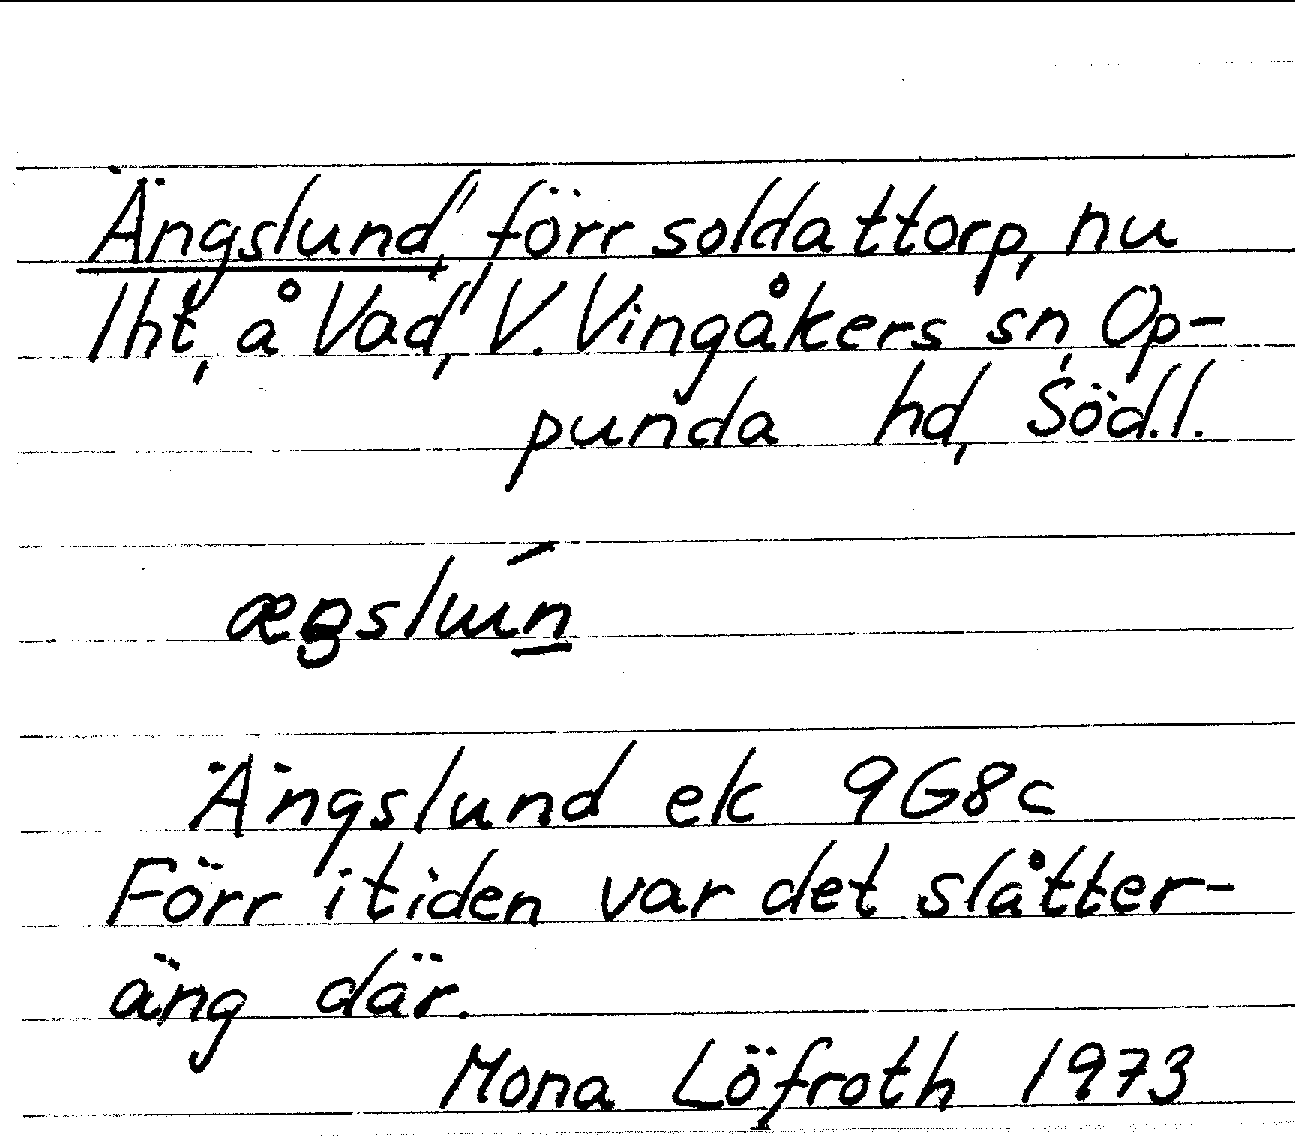 Ängslund," förr soldattorp, nu
lht, å Vad," V. Vingåkers sn, Op-
punda hd, Söd.l.
Ängslund ek 9G8c
Förr i tiden var det slåtter-
äng där.
Mona Löfroth 1973